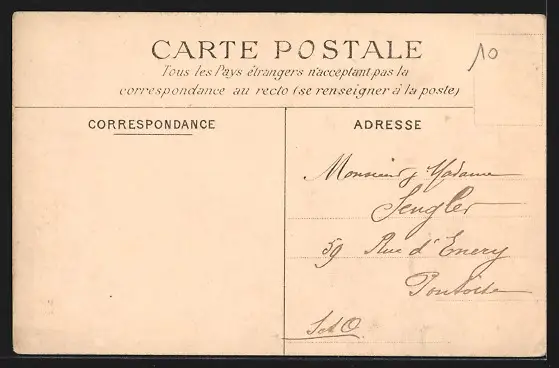 CARTE POSTALE
10
Tous les Pays étrangers n'acceptant pas la
correspondance au recto (se renseigner à la poste)
CORRESPONDANCE
ADRESSE
Monsieur & Madame
Sengler
59 Rue d'Enery
Pontoise
S & O